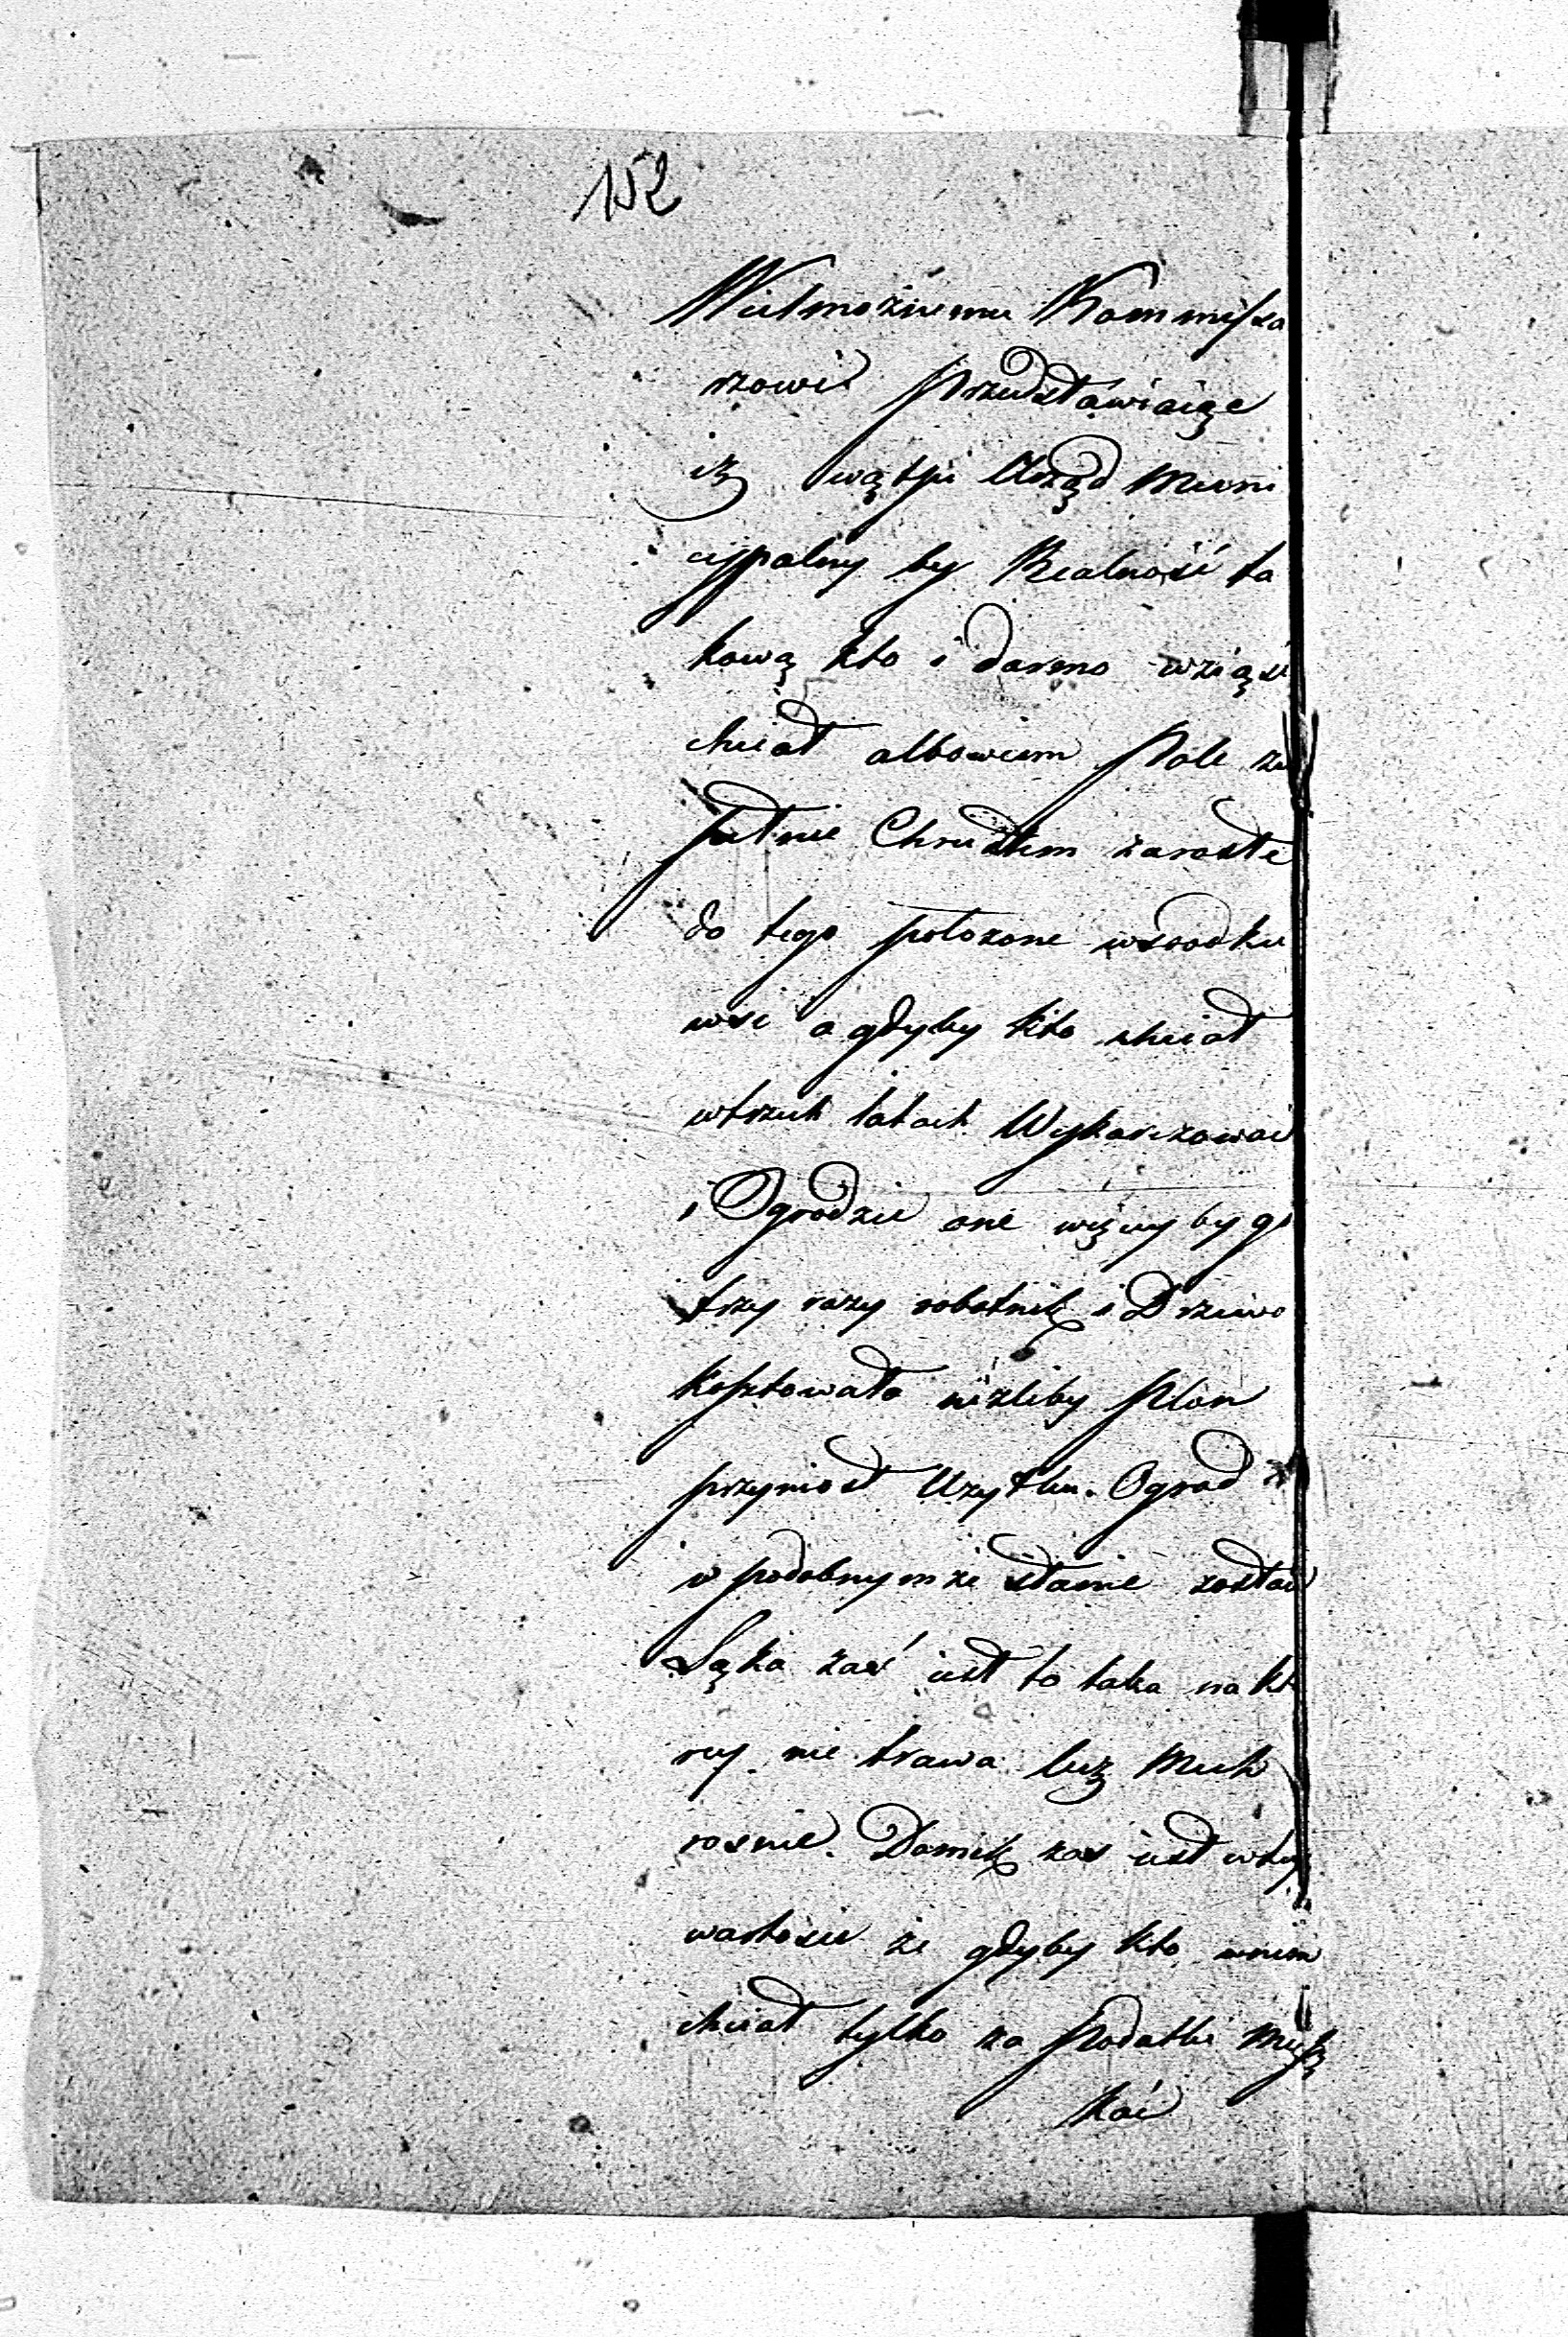 152
Wielmożnemu Kommissa
rzowi Przedstawiaiąc
iż wątpi Urząd Muni
cypalny by Realność ta
kową kto i darmo wziąść
chciał albowiem Pole zu
pełnie Chrustem zarosłe
do tego położone wsrodku
wsi a gdyby kto chciał
wtrzech latach Wykarczować
i Ogrodzić one więcey by go
trzy razy robotnik i Drzewo
kosztowało niżliby Plon
przyniosł Uzytku. Ogrod
w podobnymże stanie zostaie
Łąka zaś iest to taka na kto
rey nie trawa lecz Mech
rosnie. Domek zas iest wtey
wartosci że gdyby kto wnim
chciał tylko za Podatki miesz
kać